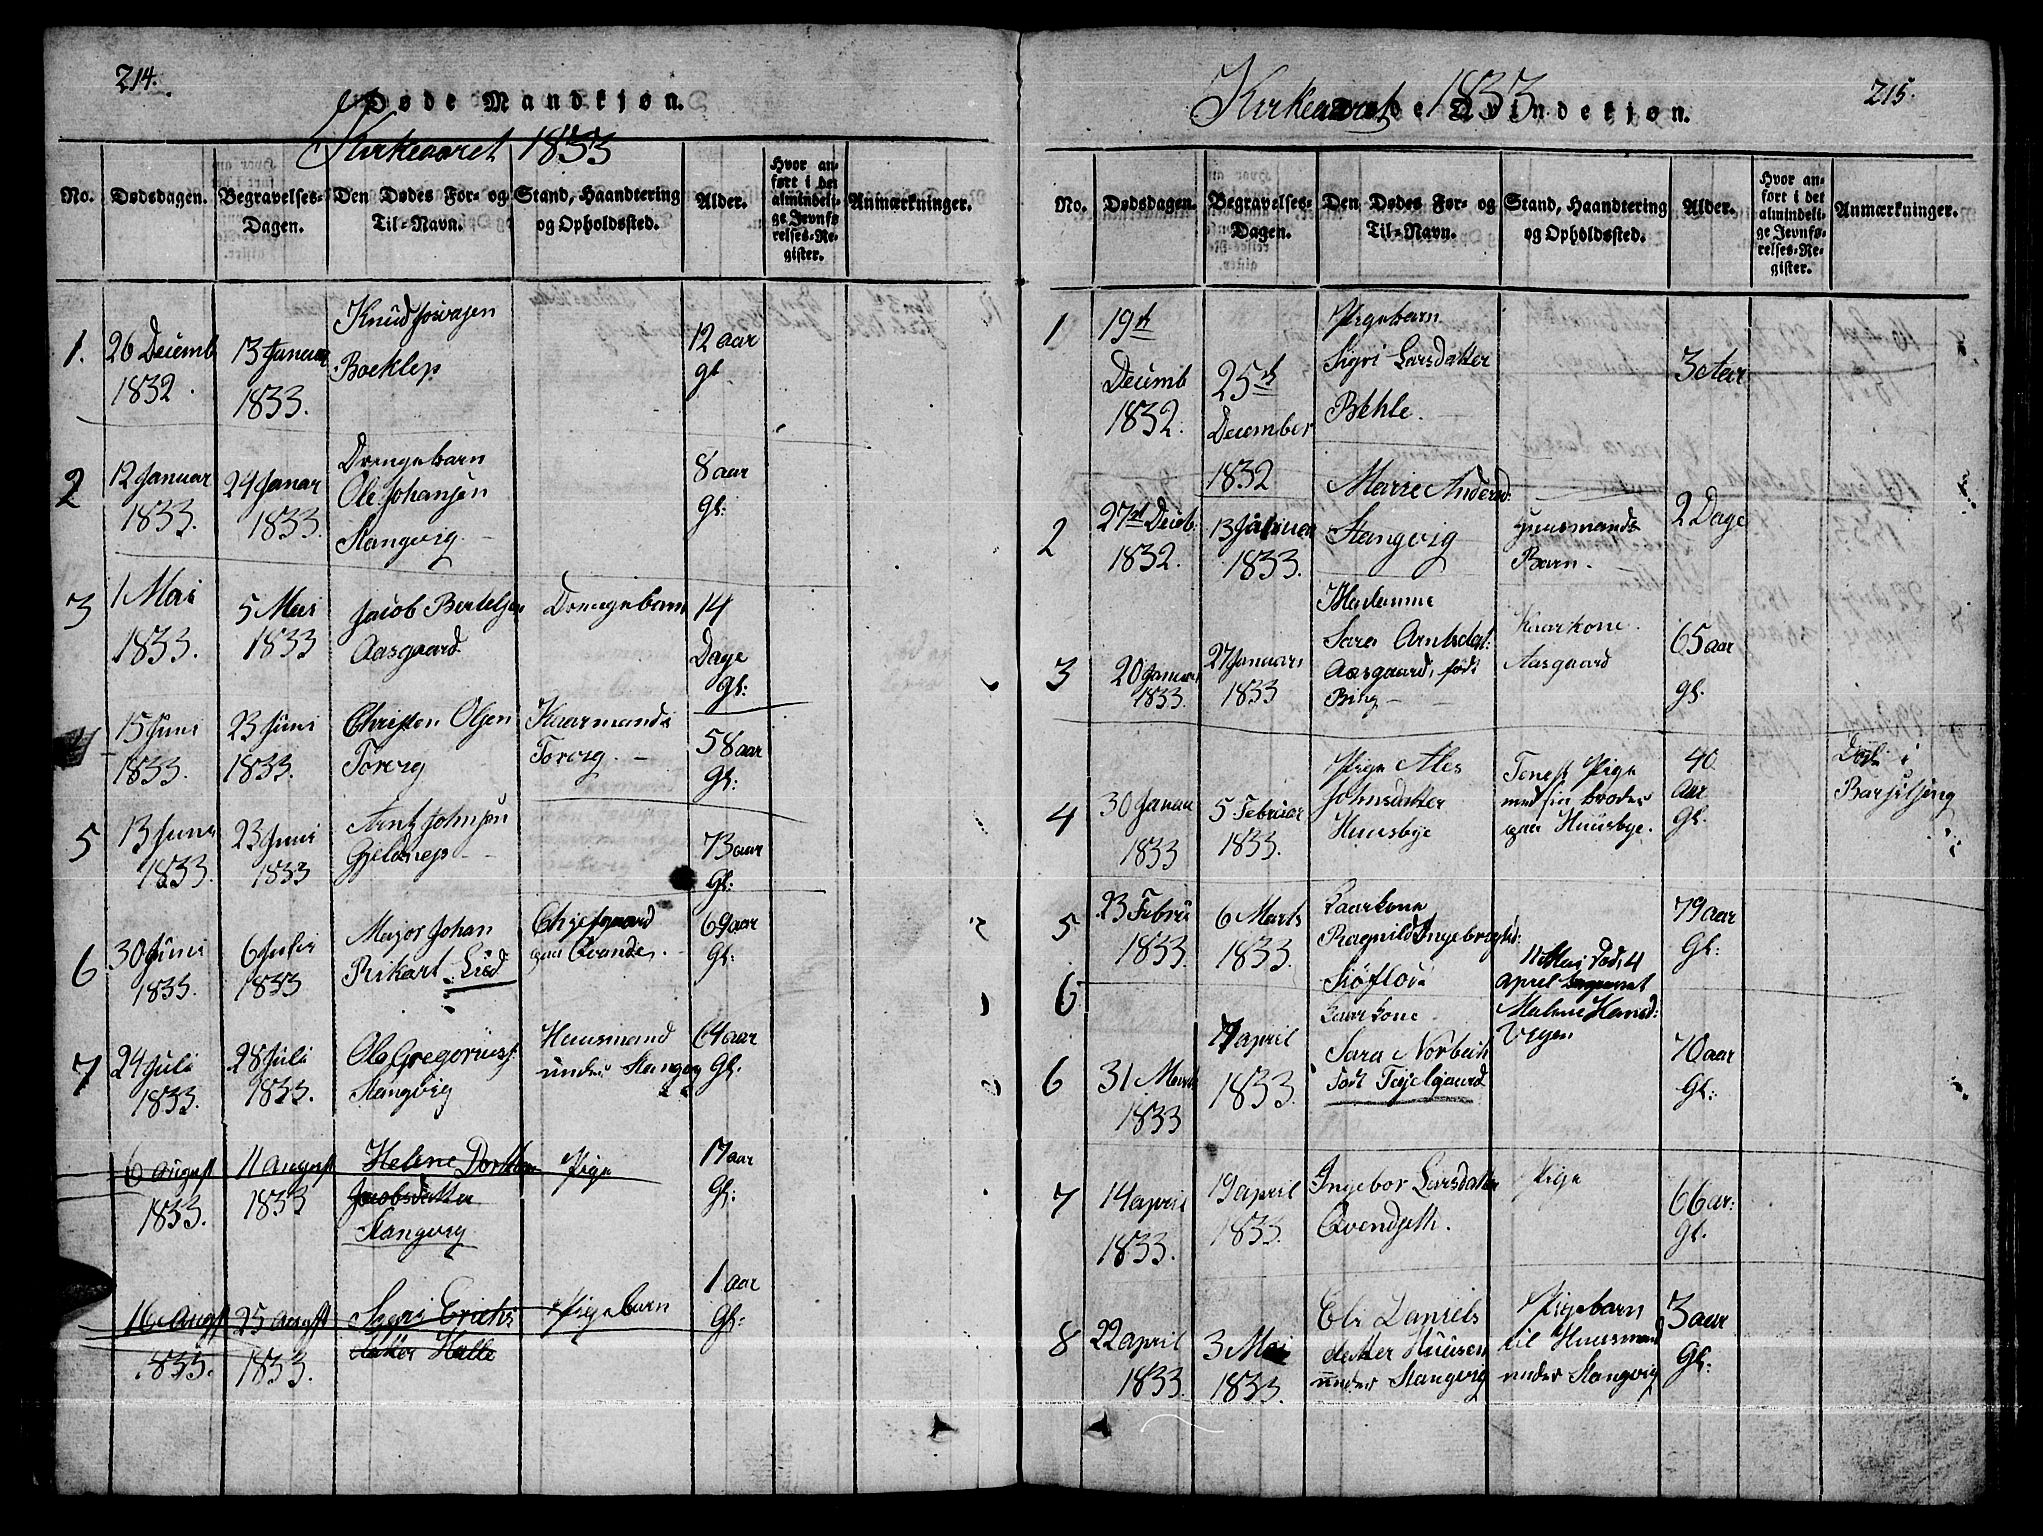 214.
Døde Mandkjøn.
Kirkeaaret 1833
No.
Dødsdagen.
Begravelses-
Dagen.
Den Dødes For- og
Til-Navn.
Stand, Haandtering
og Opholdssted.
Alder.
Hvor an-
ført i det
almindeli-
ge Jevnfø-
relses-Re-
gister.
Anmærkninger.
1.
26 Decemb
1832.
13 Januar
1833.
Knud
Boeklep
12 aar
gl
2
12 Januar
1833.
24 Janar
1833.
Drengebarn
Ole Johansen
Stangvig.
8 aar
Gl:
3
1 Mai
1833.
5 Mai
1833
Jacob Bertelsen
Aasgaard
Drengebarn
14
Dage
Gl:
4
15 Juni
1833.
23 Juni
1833.
Christen Olsen
Toreng
Kaarmand i
Toreng.
58 aar
Gl:
5
13 Juni
1833.
23 Juni
1833
Arnt Johnsen
73 aar
Gl:
6
30 Juni
1833.
6 Juli
1833
Major Johan
Rikart Lied
paa Qvande.
69 aar
Gl:
7
24 Juli
1833.
28 Juli
1833.
Ole Gregoriuss:
Stangvig
Huusmand
under Stangvig
64 aar
Gl:
6 August
1833.
11 August
1833
Helene Dorthea
Jacobsdatter
Stangvig
Pige
17 aar
Gl:
16 Augst
1833.
25 Augst
1833.
Sigri Erichs
datter Halle
Pigebarn
1 aar
Gl:
215.
Døde Qvindekjøn.
Kirkeaaret 1833
No.
Dødsdagen.
Begravelses-
Dagen.
Den Dødes For- og
Til-Navn.
Stand, Haandtering
og Opholdssted.
Alder.
Hvor an-
ført i det
almindeli-
ge Jevnfø-
relses-Re-
gister.
Anmærkninger.
1
19de
Decemb
1832.
25de
December
1832
Pigebarn
Sigri Larsdatter
Behle.
3 Aar
2
27de Decb.
1832.
13 Januar
1833.
Marie Andersd:
Stangvig
Huusmands
Barn.
2 Dage
3
20 Januar
1833.
27 Januari
1833
Madamme
Sara Arntsdat:
Aasgaard, født
Bing
Kaarkone.
Aasgaard
65 aar
gl.
4
30 Janua
1833
5 Februar
1833.
Pige Ales
Johnsdatter
Huusbye
Pige
med sin broder
paa Huusbye.
40
Aar
Gl.
Døde i
5
23 Febru
1833.
6 Marts
1833.
Kaarkone
Ragnild Ingebrigtsd:
79 aar
Gl:
6
Kaarkone
11 Mai død, 4
april begravet
Malene Hansd:
6
31 Marts
1833
7 april
1833.
Sara
født
70 aar
Gl:
7
14 april
1833.
19 april
1833.
Ingebor Larsdatter
Qvendseth.
Pige
66 ar:
Gl.
8
22 april
1833.
3 Mai
1833.
Ole Daniels
datter Huusen
under Stangvig
Pigebarn
til Huusmand
under Stangvig
3 aar
Gl: